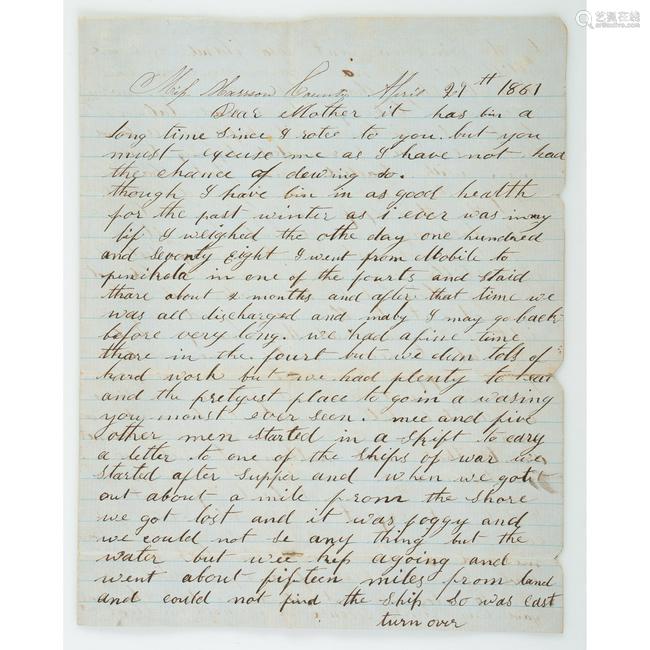 艺狐在线
Miss Harrson County April 29th 1861
Dear Mother it has bin a
long time since I rotee to you. but you
must excuse me as I have not had
the chance of dewing so.
though I have bin in as good health
for the past winter as i ever was in my
lif I weighed the othe day one hundred
and seventy Eight I went from Mobile to
penikola in one of the fourts and staid
thare about 2 months and after that time we
was all discharged and maby I may go back
before very long. we had a fine time
thare in the fourt but we dun lots of
hard work but we had plenty to eat
and the pretyest place to go in a wasing
you monst ever seen. mee and five
other men started in a skift to cary
a letter to one of the ships of war we
started after supper and when we got
out about a mile from the shore
we got lost and it was foggy and
we could not se any thing but the
water but wee kep agoing and
went about fifteen miles from land
and could not find the ship so was cast
turn over